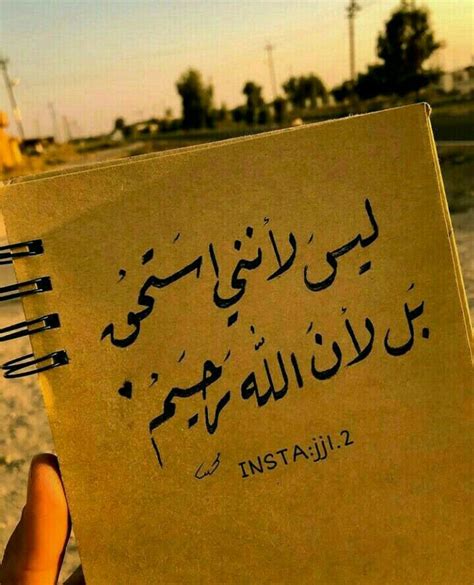 ليسَ لأنني استَحقُ
بَل لأنَ اللّٰه رَحيَمُ
INSTA:jjl.2